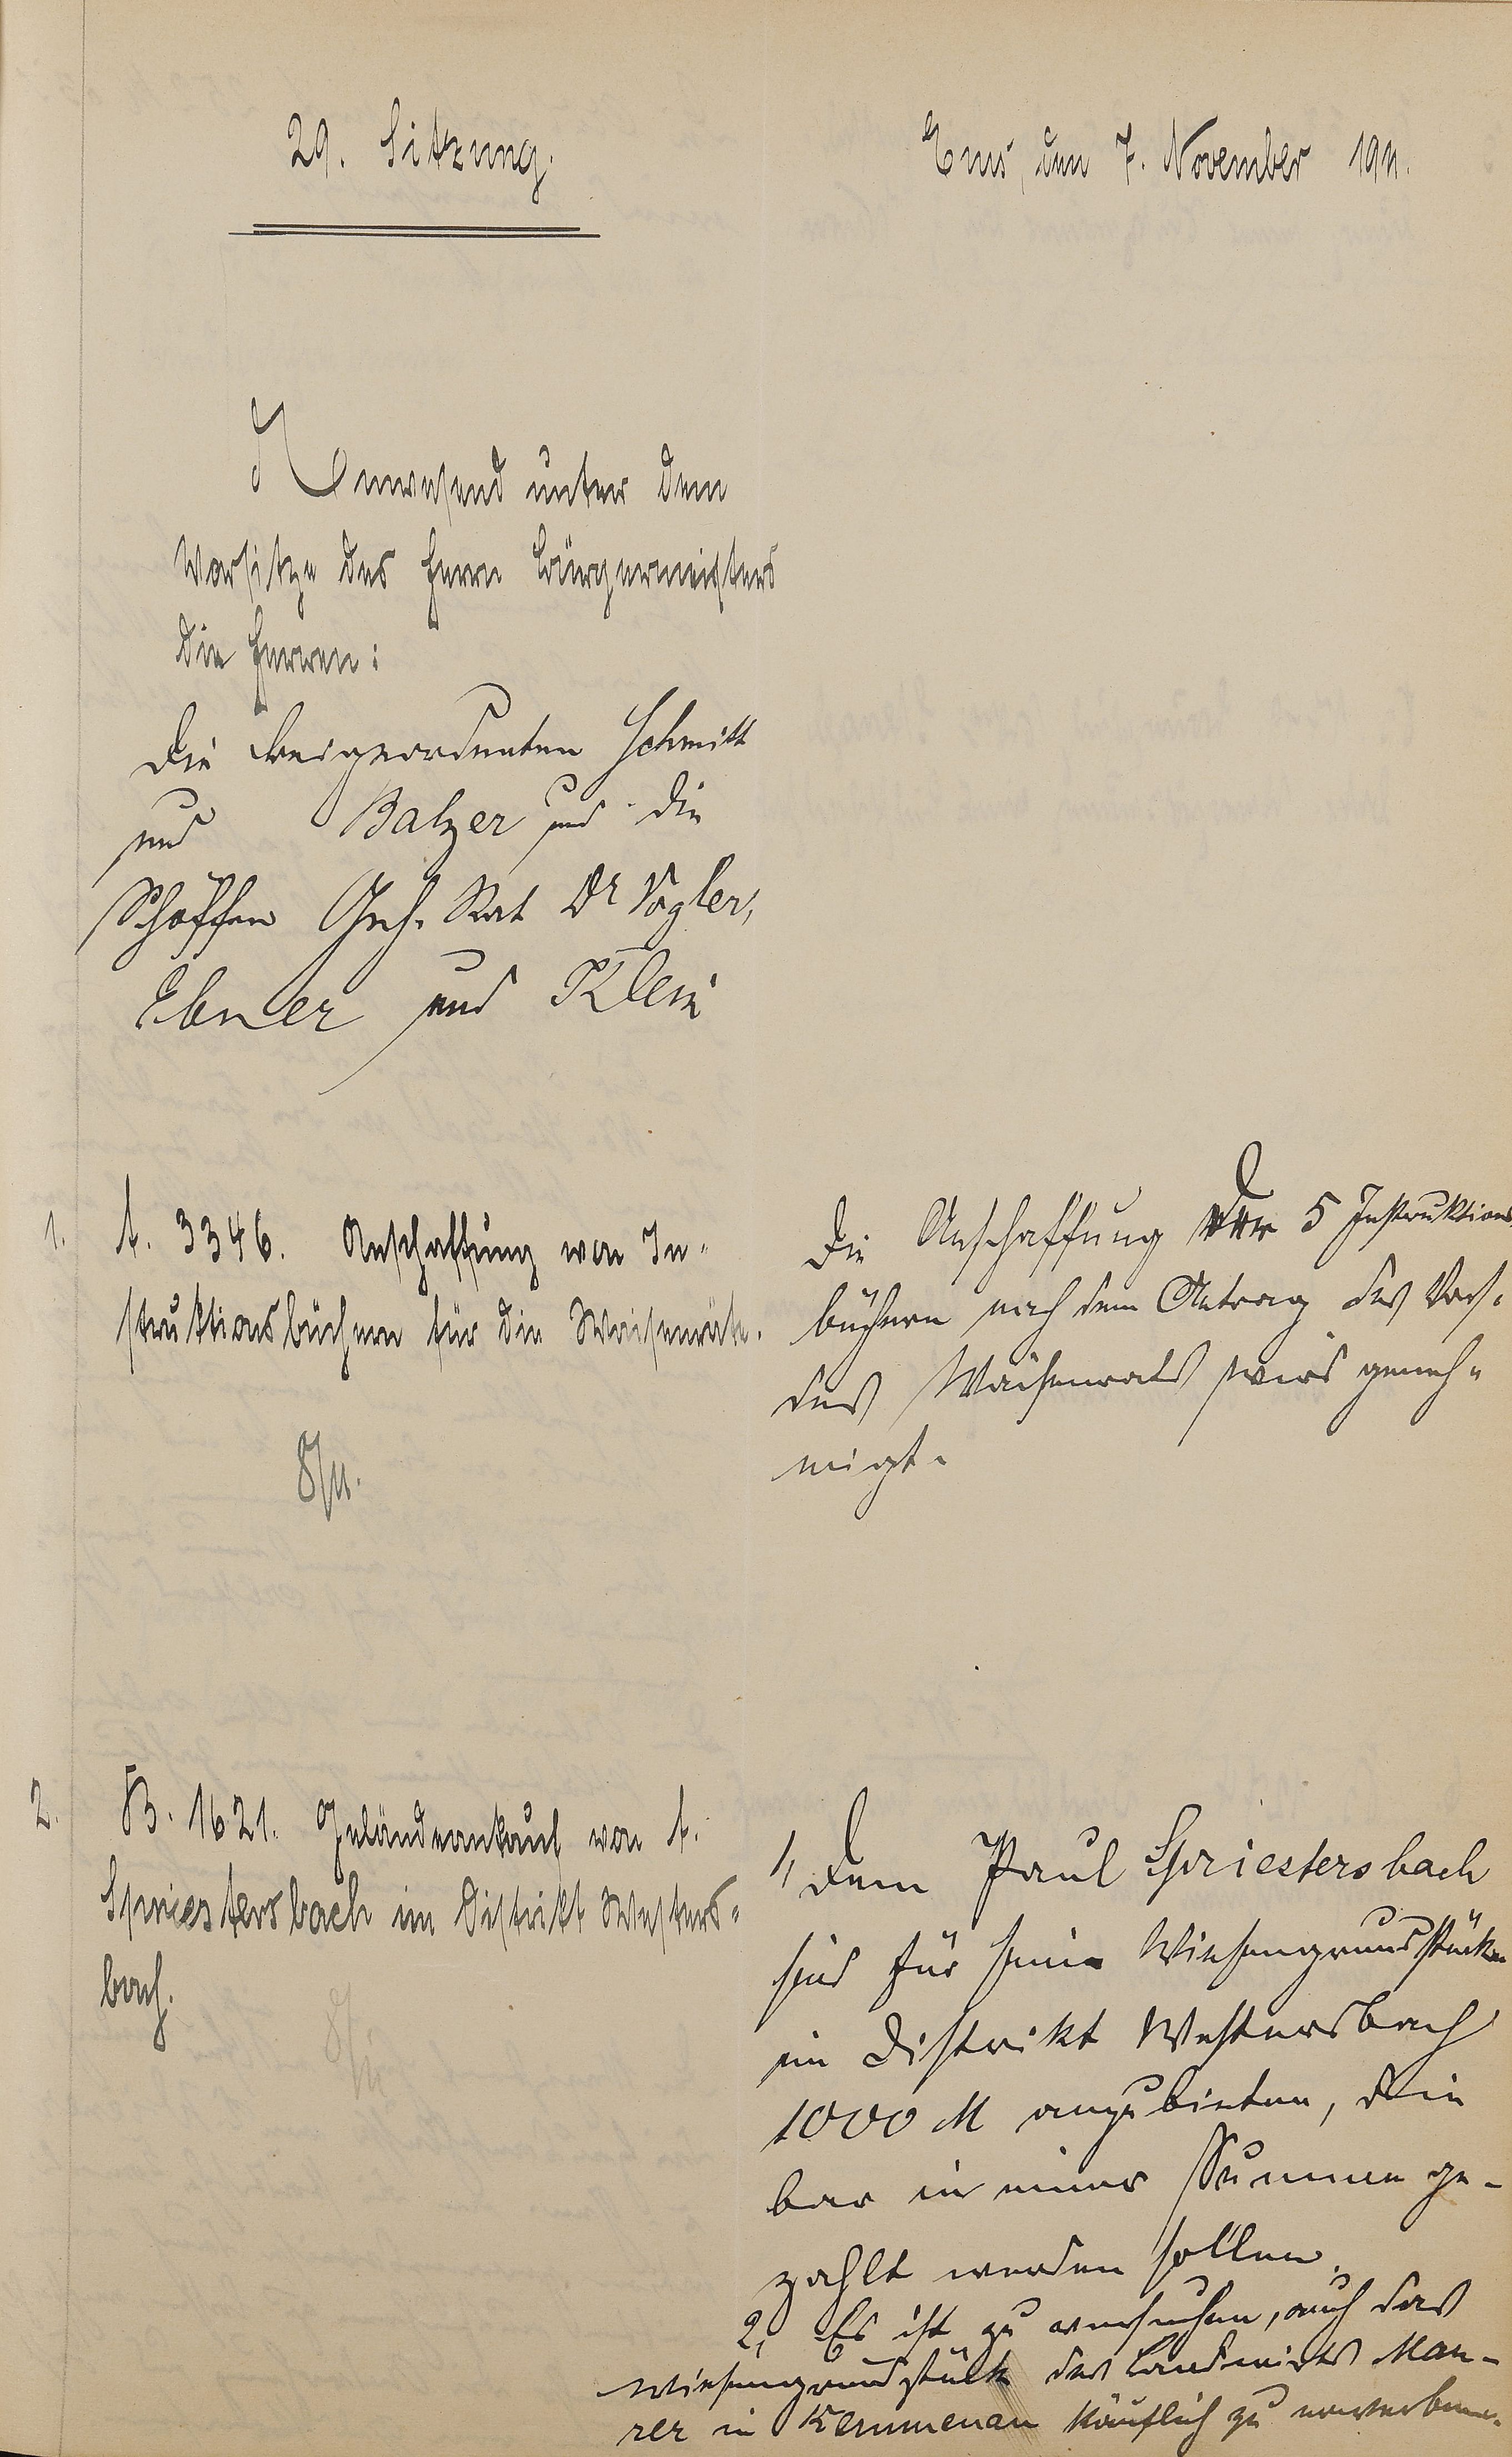 29. Sitzung.
Ems, den 7. November 1911.
Anwesend unter dem
Vorsitze des Herrn Bürgermeisters
die Herren:
Die Beigeordneten Schmitt
und Balzer und die
Schöffen Geh. Rat Dr Vogler,
Ebner und Klein
1. A. 3346. Anschaffung von In-
struktionsbüchern für die Waisenräte.
8/11.
Die Anschaffung von 5 Instruktions
büchern nach dem Antrag des Vors.
des Waisenrats wird geneh-
migt.
2. B. 1621. Geländeankauf von A.
Spriestersbach im Distrikt Westers-
bach.
8/11
1, Dem Paul Spriestersbach
sind für seine Wiesengrundstücke
im Distrikt Westersbach
1000 M anzubieten, die
bar in einer Summe ge-
zahlt werden sollen.
2, Es ist zu versuchen, auch das
Wiesengrundstück des Landwirts Mau-
rer in Kemmenau käuflich zu erwerben.